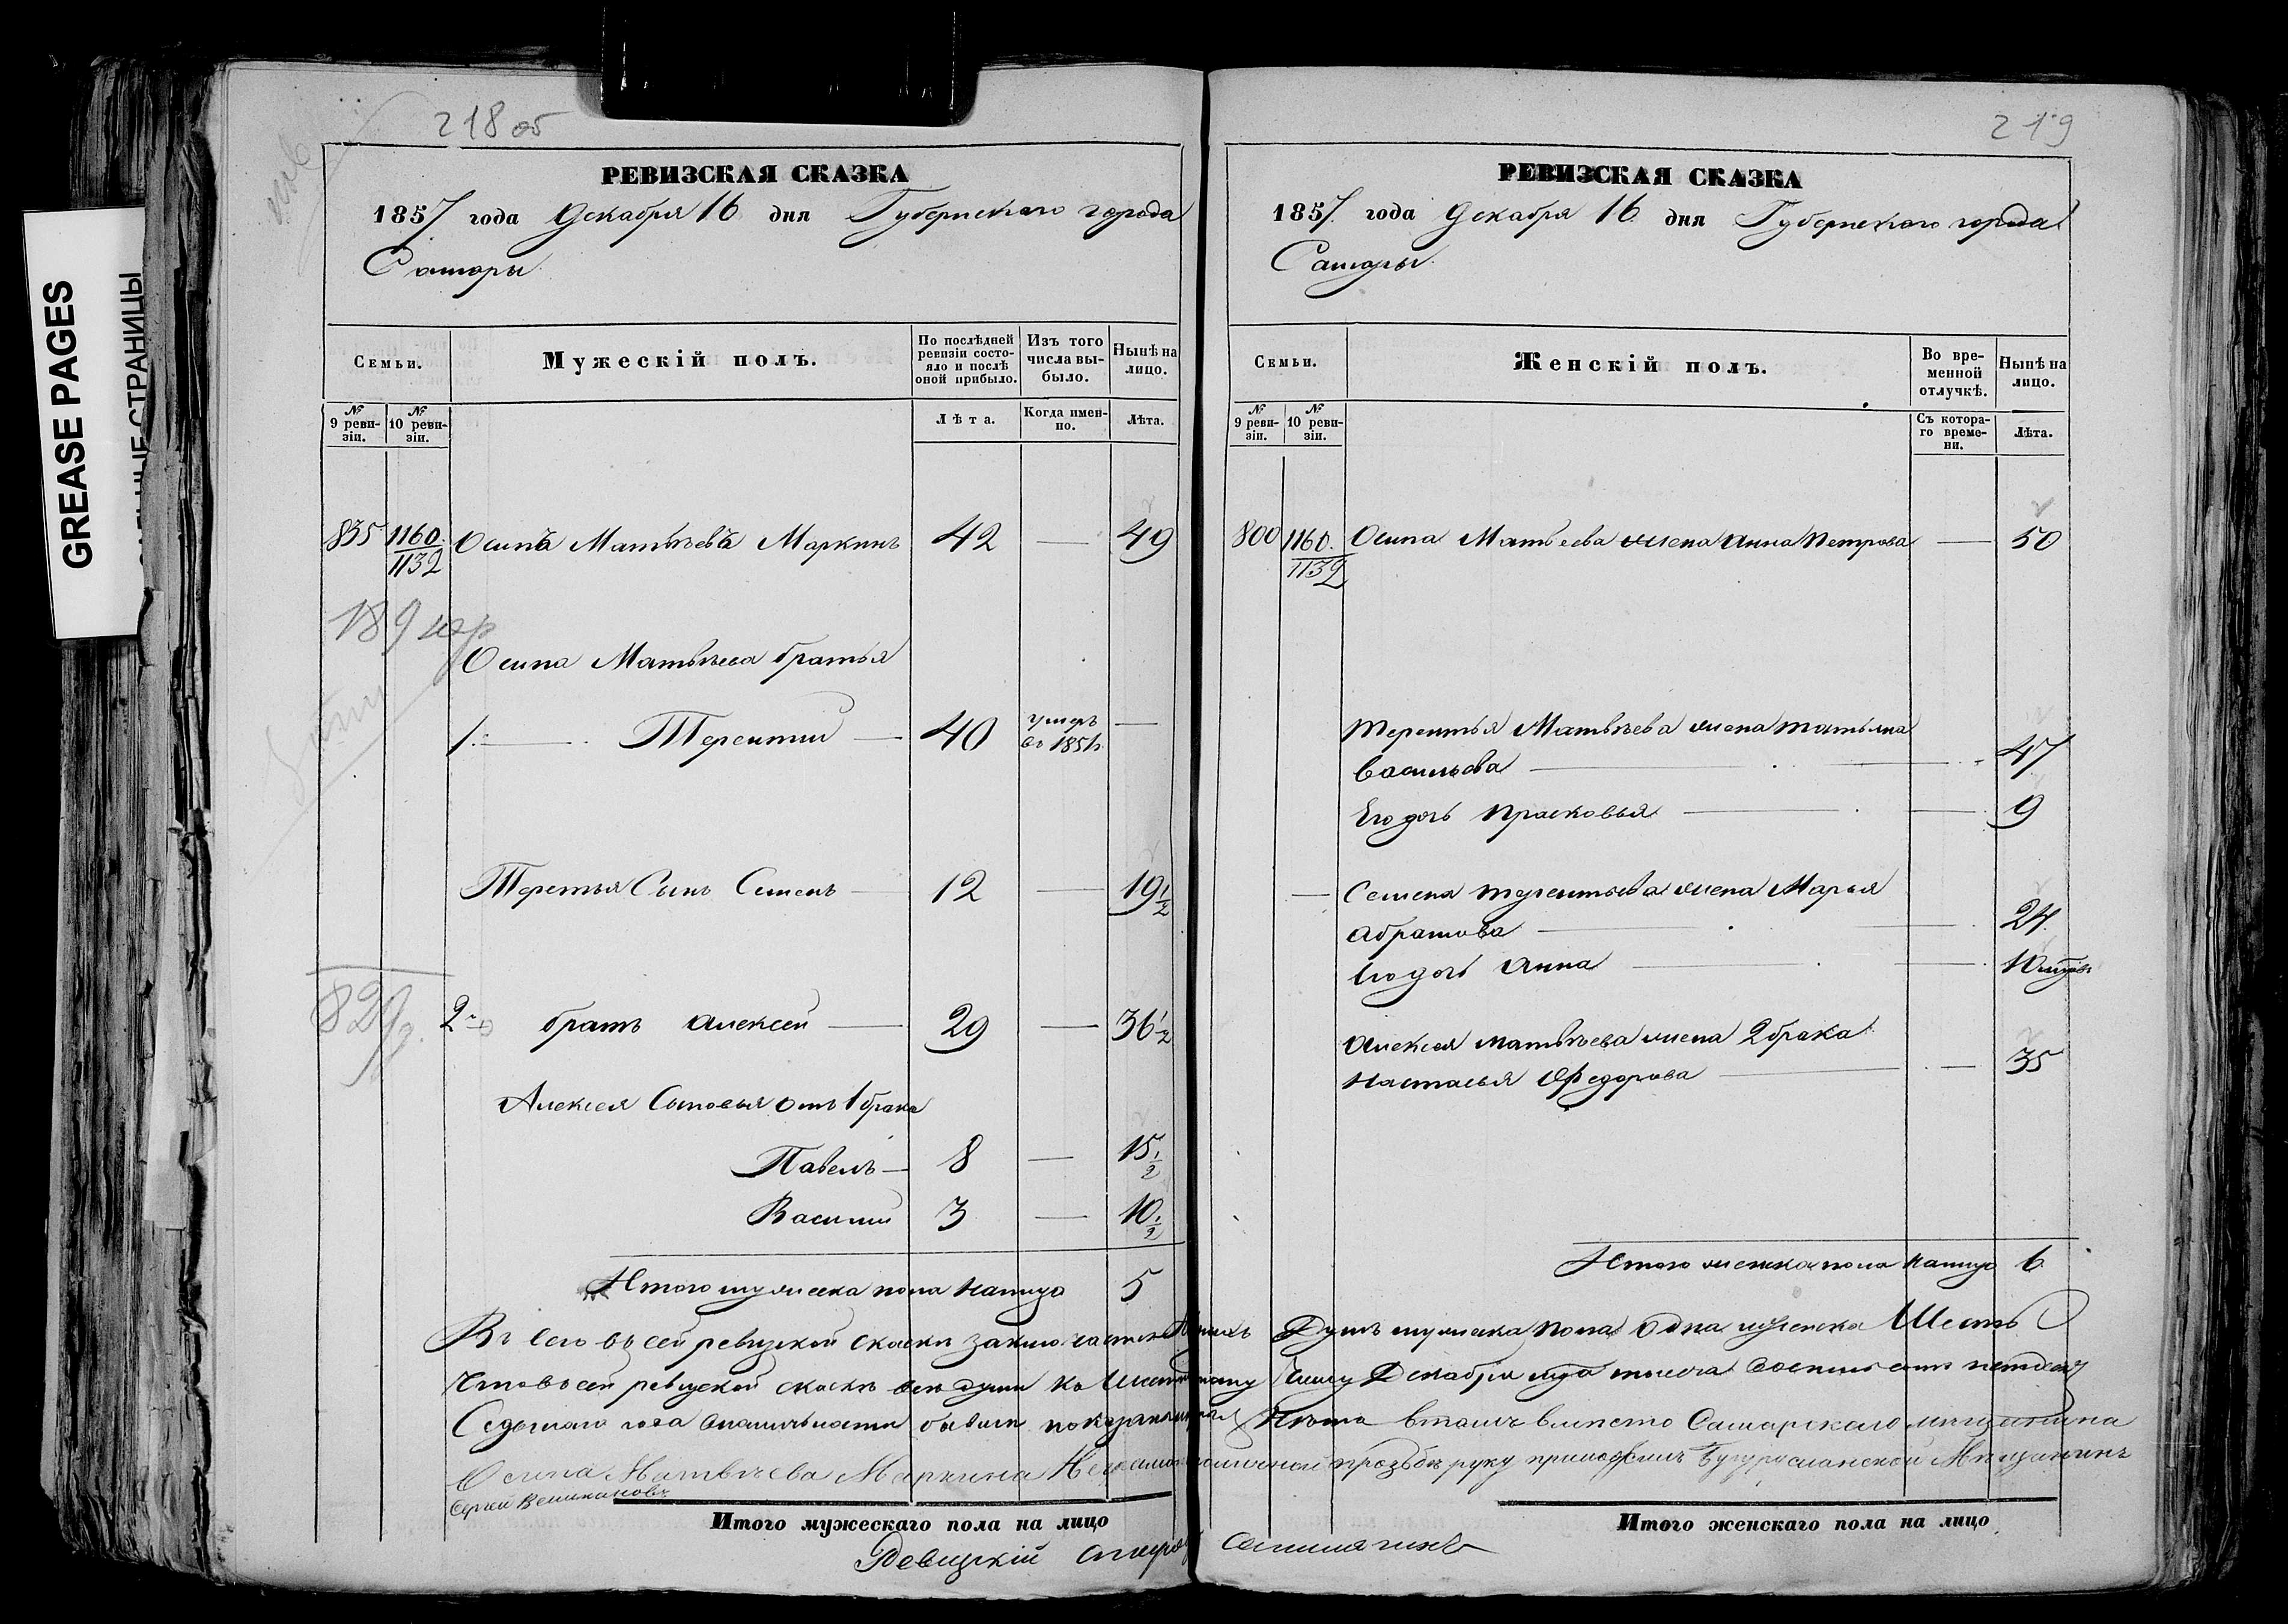 GREASE PAGES
218 об
РЕВИЗСКАЯ СКАЗКА
1857 года Декабря 16 дня Губернского города
Самары
Семьи.
Мужескій полъ.
По послѣдней ревизіи состояло и послѣ оной прибыло.
Изъ того числа выбыло.
Нынѣ на лицо.
№ 9 ревизіи.
№ 10 ревизіи.
Лѣта.
Когда именно.
Лѣта.
835 1160. 1132 Осипъ Матвѣевъ Маркинъ 42 — 49
189
Осипа Матвѣева братья
1. Терентий — 40 умеръ въ —
Терентья Сынъ Семенъ — 12 — 19 1/2
2 братъ Алексей — 29 — 36 1/2
Алексея Сыновья отъ 1 брака
Павелъ — 8 — 15 1/2
Василий 3 — 10 1/2
Итого мужеска пола налицо 5
219
РЕВИЗСКАЯ СКАЗКА
1857 года Декабря 16 дня Губернского города
Самары
Семьи.
Женскій полъ.
Во временной отлучкѣ.
Нынѣ на лицо.
№ 9 ревизіи.
№ 10 ревизіи.
Съ котораго времени.
Лѣта.
800 1160. 1132 Осипа Матвеева жена Анна Петрова — 50
Терентья Матвѣева жена Татьяна
Васильева — 47
Его дочь Прасковья — 9
Семена Терентьева жена Марья
Абрамова — 24
Его дочь Анна — 10
Алексея Матвѣева жена 2 брака
Настасья Федорова — 35
Итого женска пола налицо 6
Въ сей ревизской скаски душъ мужеска пола женска Шесть
Что въ сей ревизской скаскѣ все души
Седьмого года
вмѣсто Самарского мещанина
Осипа Матвѣева Маркина прозьбѣ руку приложилъ Бугурусланской Мѣщанинъ
Сергей Великановъ
Итого мужескаго пола на лицо
Итого женскаго пола на лицо